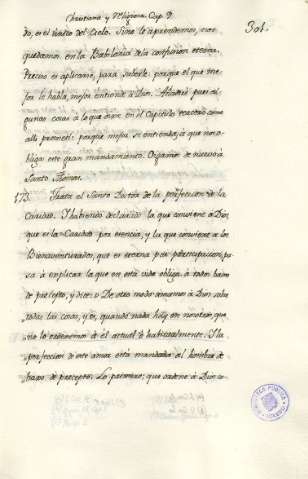 Christiana y Religiosa. Cap. 9.
301.
do, es el idioma del Cielo. Sino le aprendemos, nos
quedamos en la Babilonia de la confusion eterna.
Preciso es aplicarse, para saberle: porque el que me-
jor le habla, mejor entiende a Dios. Añadiré pues al-
gunas cosas à lo que dixe en el Capitulo
alli prometí: porque mejor se entienda à que nos o-
bliga este gran mandamiento. Oigamos de nuevo à
Santo Thomas.
173. Trata el Santo Doctor de la perfeccion de la
Caridad. I habiendo declarado la que conviene à Dios,
que es la Caridad por esencia, y la que conviene a los
Bienaventurados, que es eterna por participacion, pa-
sa à explicar la que en esta vida obliga à todos baxo
de precepto, y dice: De otro modo amamos à Dios sobre
todas las cosas, y es, quando nada hay en nosotros, que
no lo ordenemos à èl actual, ò habitualmente. I la
perfeccion de este amor está mandada al hombre de-
baxo de precepto. Lo primero: que ordene à Dios co-